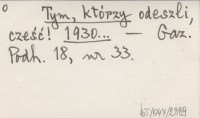 Tym, którzy odeszli,
cześć! 1930... — Gaz.
Podh. 18, nr 33.